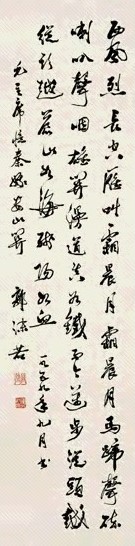 西風烈長空雁叫霜晨月霜晨月馬蹄聲碎
喇叭聲咽雄關漫道真如鐵而今邁步從頭越
從頭越蒼山如海殘陽如血 一九五九年九月書
毛主席憶秦娥婁山關 郭沫若